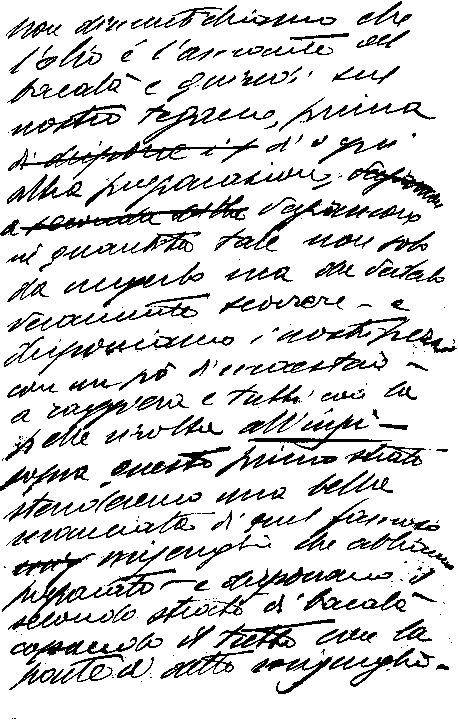 non dimentichiamo che
l'olio è l'amante del
bacalà e quindi sul
nostro tegame, prima
di disporre i d'ogni
altra preparazione,
a seconda della versiamo
in quantità tale non solo
da ungerlo ma da vederlo
veramente scorrere - e
disponiamo i nostri pezzi
con un pò di maestria -
a raggiera e tutti con la
pelle rivolta all'ingiù -
sopra questo primo strato
stenderemo una bella
manciata di quel famoso
che abbiamo
preparato - e disponiamo il
secondo strato di bacalà
coprendolo il tutto con la
parte di detto